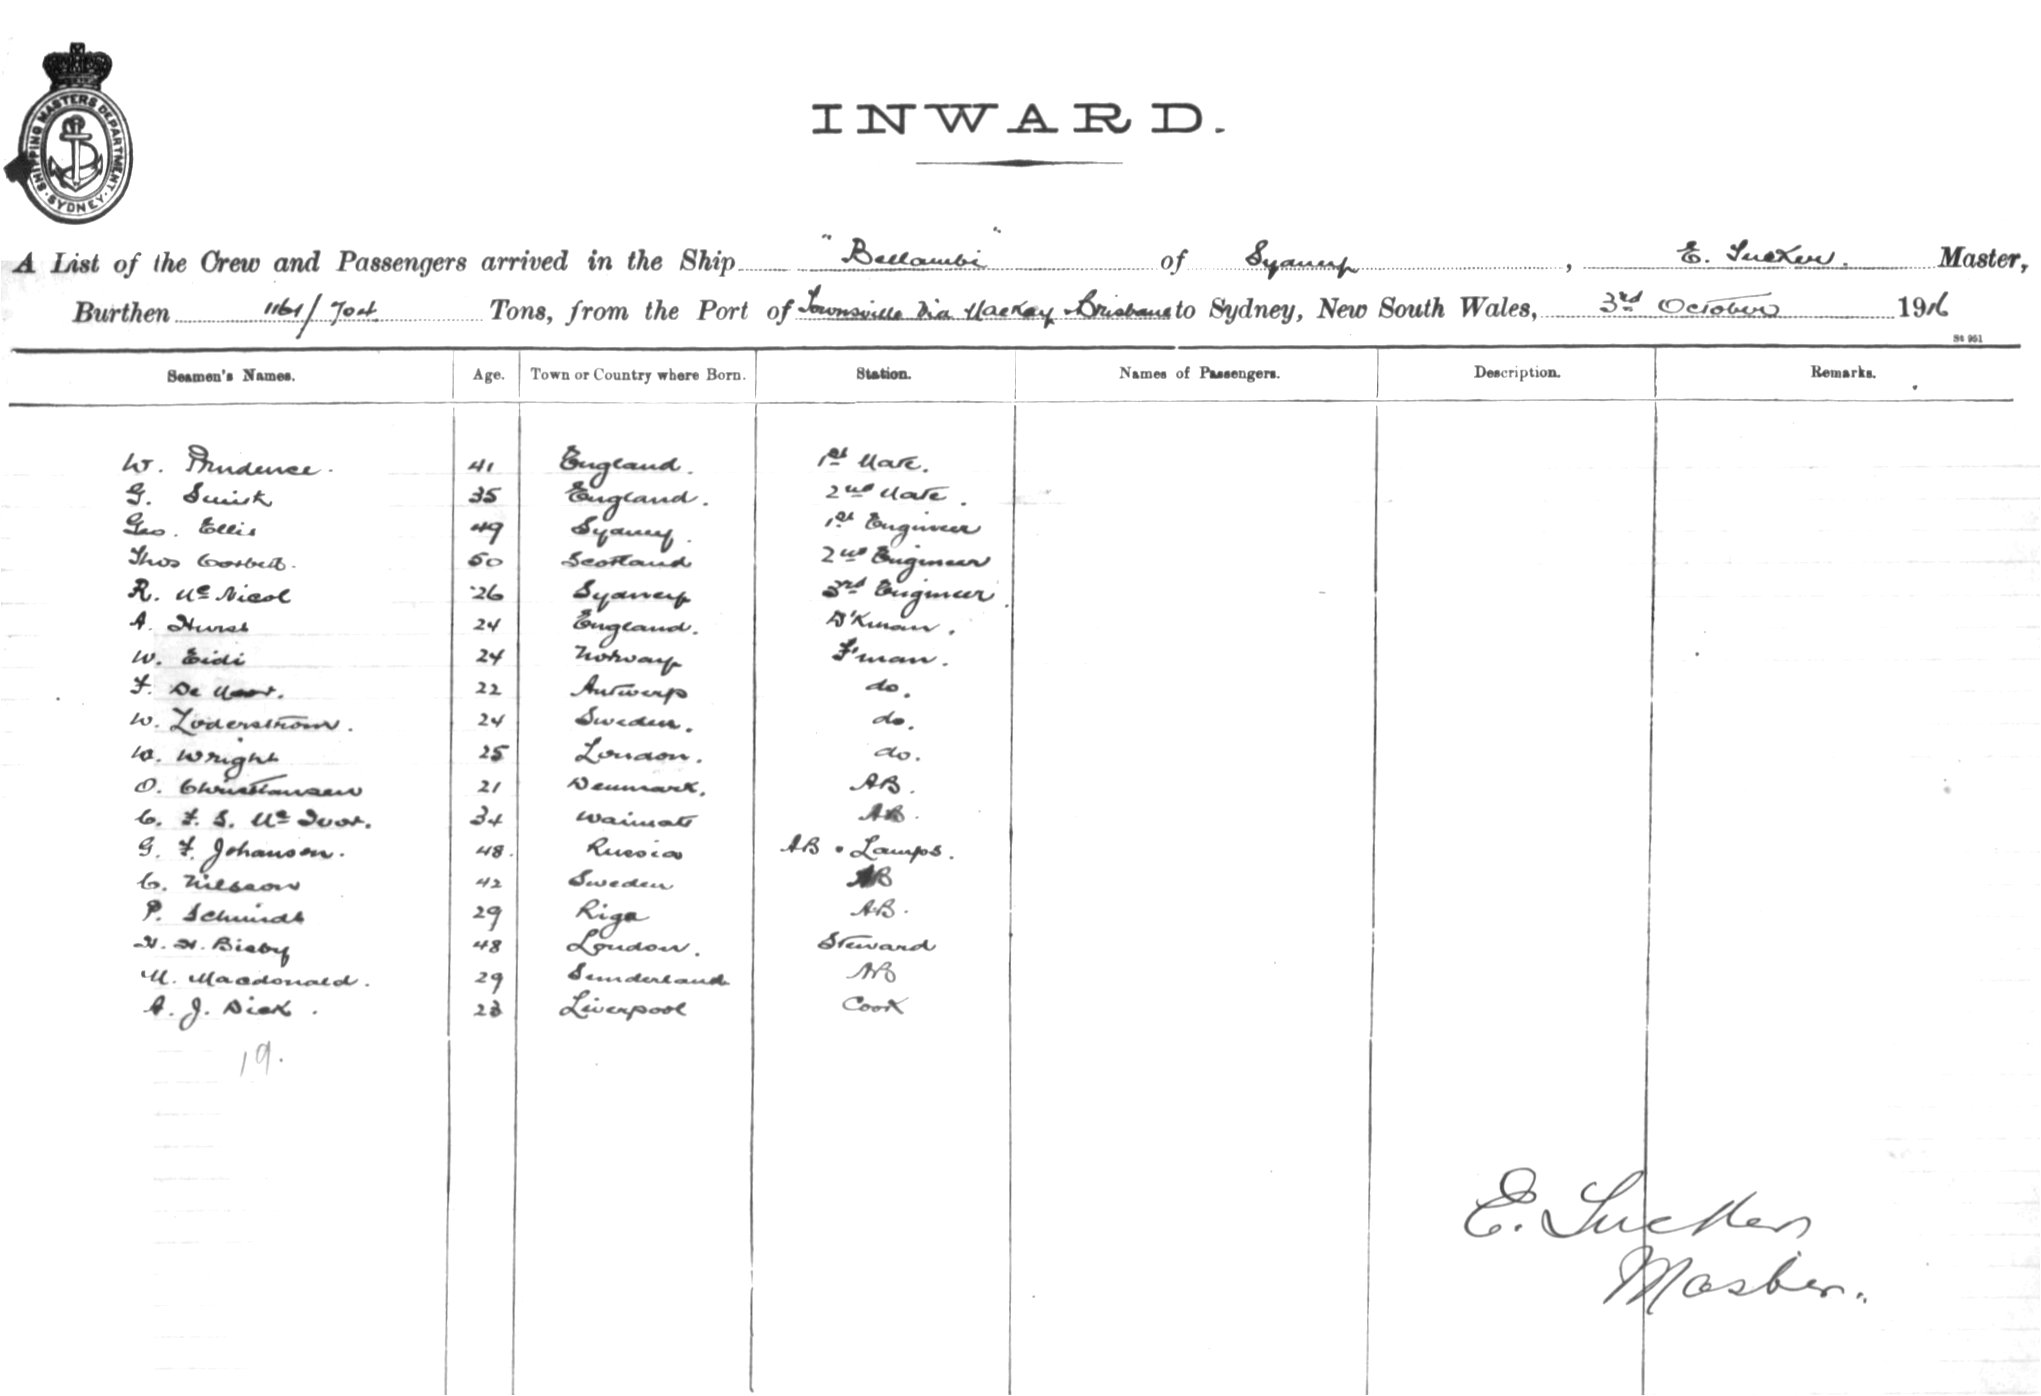 SHIPPING MASTERS DEPARTMENT
SYDNEY
INWARD.
A List of the Crew and Passengers arrived in the Ship "Bellambi" of Sydney, E. Tucker. Master,
Burthen 1161/704 Tons, from the Port of Townsville via Mackay & Brisbane to Sydney, New South Wales, 3rd October 1916
St 951
Seamen's Names. Age. Town or Country where Born. Station. Names of Passengers. Description. Remarks.
W. Prudence. 41 England. 1st Mate.
G. 35 England. 2nd Mate.
Geo. Ellis 49 Sydney. 1st Engineer
Thos Corbett. 50 Scotland 2nd Engineer
R. McNicol 26 Sydney 3rd Engineer
A. Hurst 24 England. D'Kman.
W. Eidi 24 Norway F'man.
F. De 22 Antwerp do.
W. Zoderstrom. 24 Sweden. do.
W. Wright 25 London. do.
O. Christiansen 21 Denmark. AB.
C. F. S. McIvor. 34 Waimate AB.
G. F. Johansen. 48. Russia AB & Lamps.
C. Nilsson 42 Sweden AB
P. Schmidt 29 Riga AB.
H. H. Bisby 48 London. Steward
M. Macdonald. 29 Sunderland AB
A. J. Dick. 23 Liverpool Cook
19.
E. Tucker
Master.